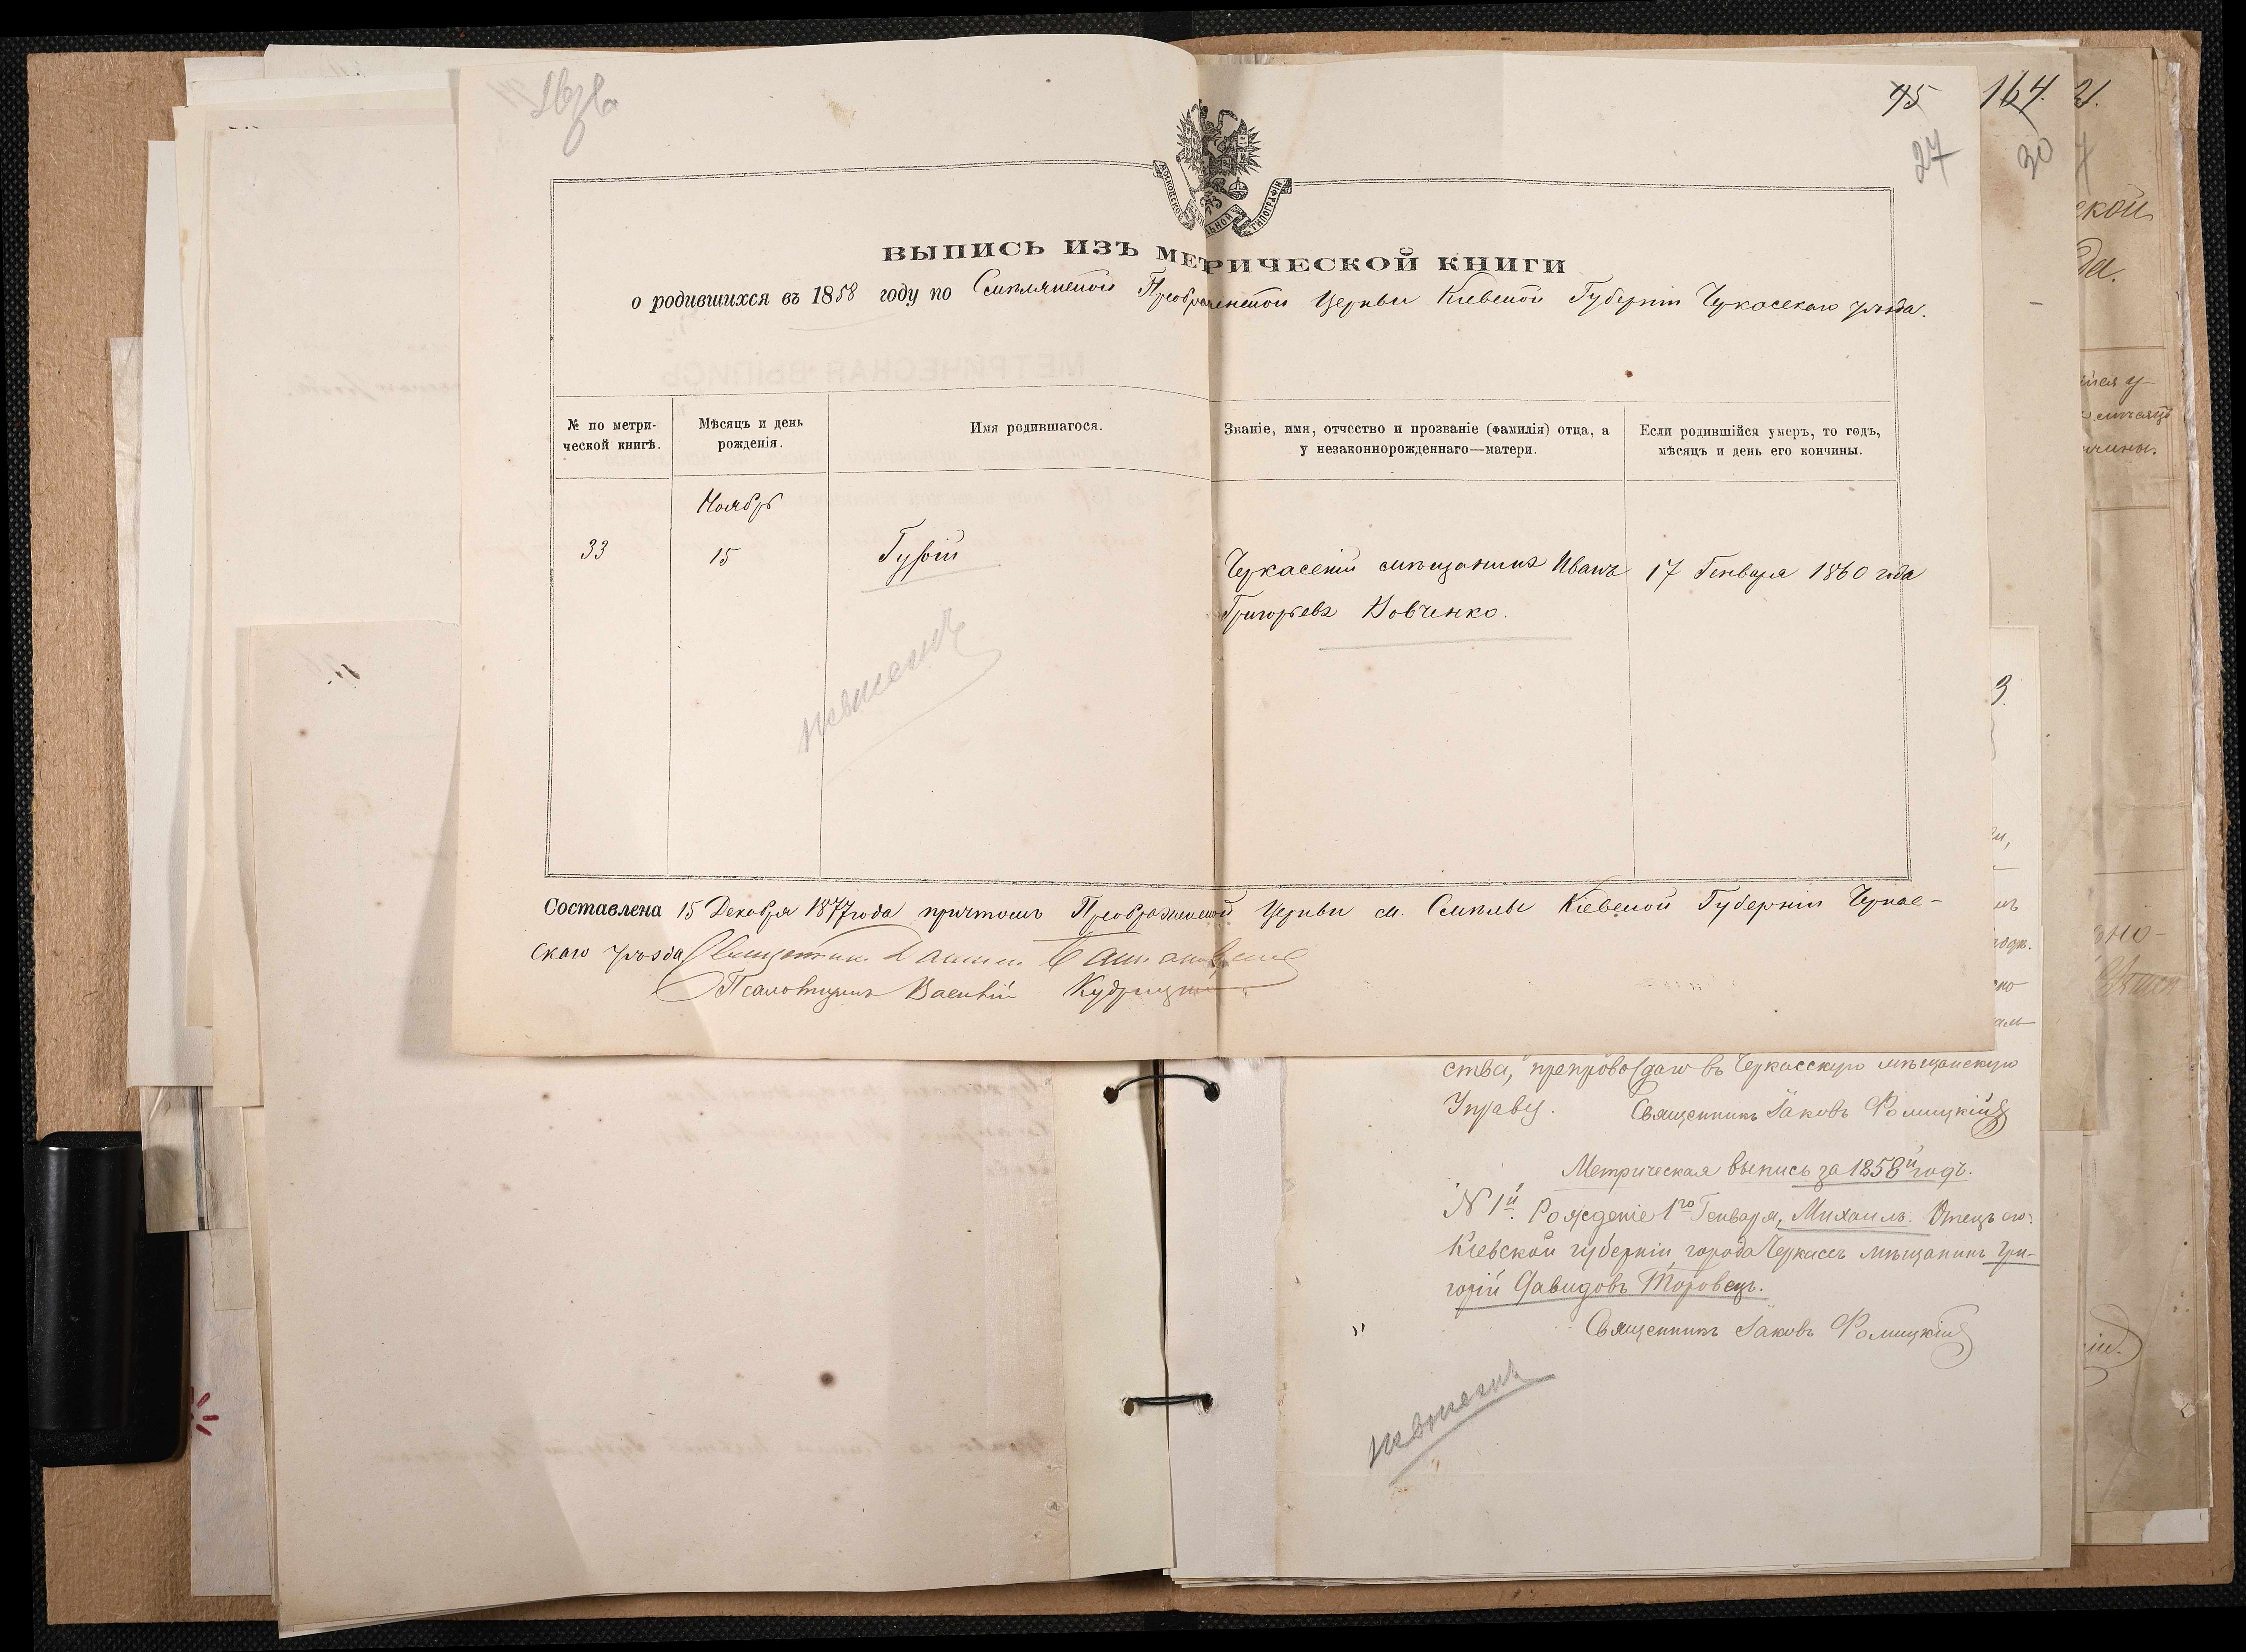 45
27
164. 21.
30
МОСКОВСКОЙ ТИПОГРАФІИ.
ВЫПИСЬ ИЗЪ МЕТРИЧЕСКОЙ КНИГИ
о родившихся въ 1858 году по Смѣлянской Преображенской Церкви Кіевской Губерніи Черкасскаго уѣзда.
№ по метри-
ческой книгѣ.
Мѣсяцъ и день
рожденія.
Имя родившагося.
Званіе, имя, отчество и прозваніе (фамилія) отца, а
у незаконнорожденнаго—матери.
Если родившійся умеръ, то годъ,
мѣсяцъ и день его кончины.
Ноябрь
33
15
Гурій
Черкасскій мѣщанинъ Иванъ
Григорьевъ Вовченко.
17 Генваря 1860 года
Составлена 15 Декабря 1877 года причтомъ Преображенской Церкви м. Смѣлы Кіевской Губерніи Черкас-
скаго уѣзда Священник
Псаломщикъ Василій Кудрицкій
ства, препровождаю въ Черкасскую мѣщанскую
Управу. Священникъ Іаковъ Фомицкій
Метрическая выпись за 1858й годъ.
N 1й. Рожденіе 1го Генваря, Михаилъ. Отецъ его:
Кіевской губерніи, города Черкассъ мѣщанинъ Гри-
горій Давидовъ Торовецъ.
Священникъ Іаковъ Фомицкій